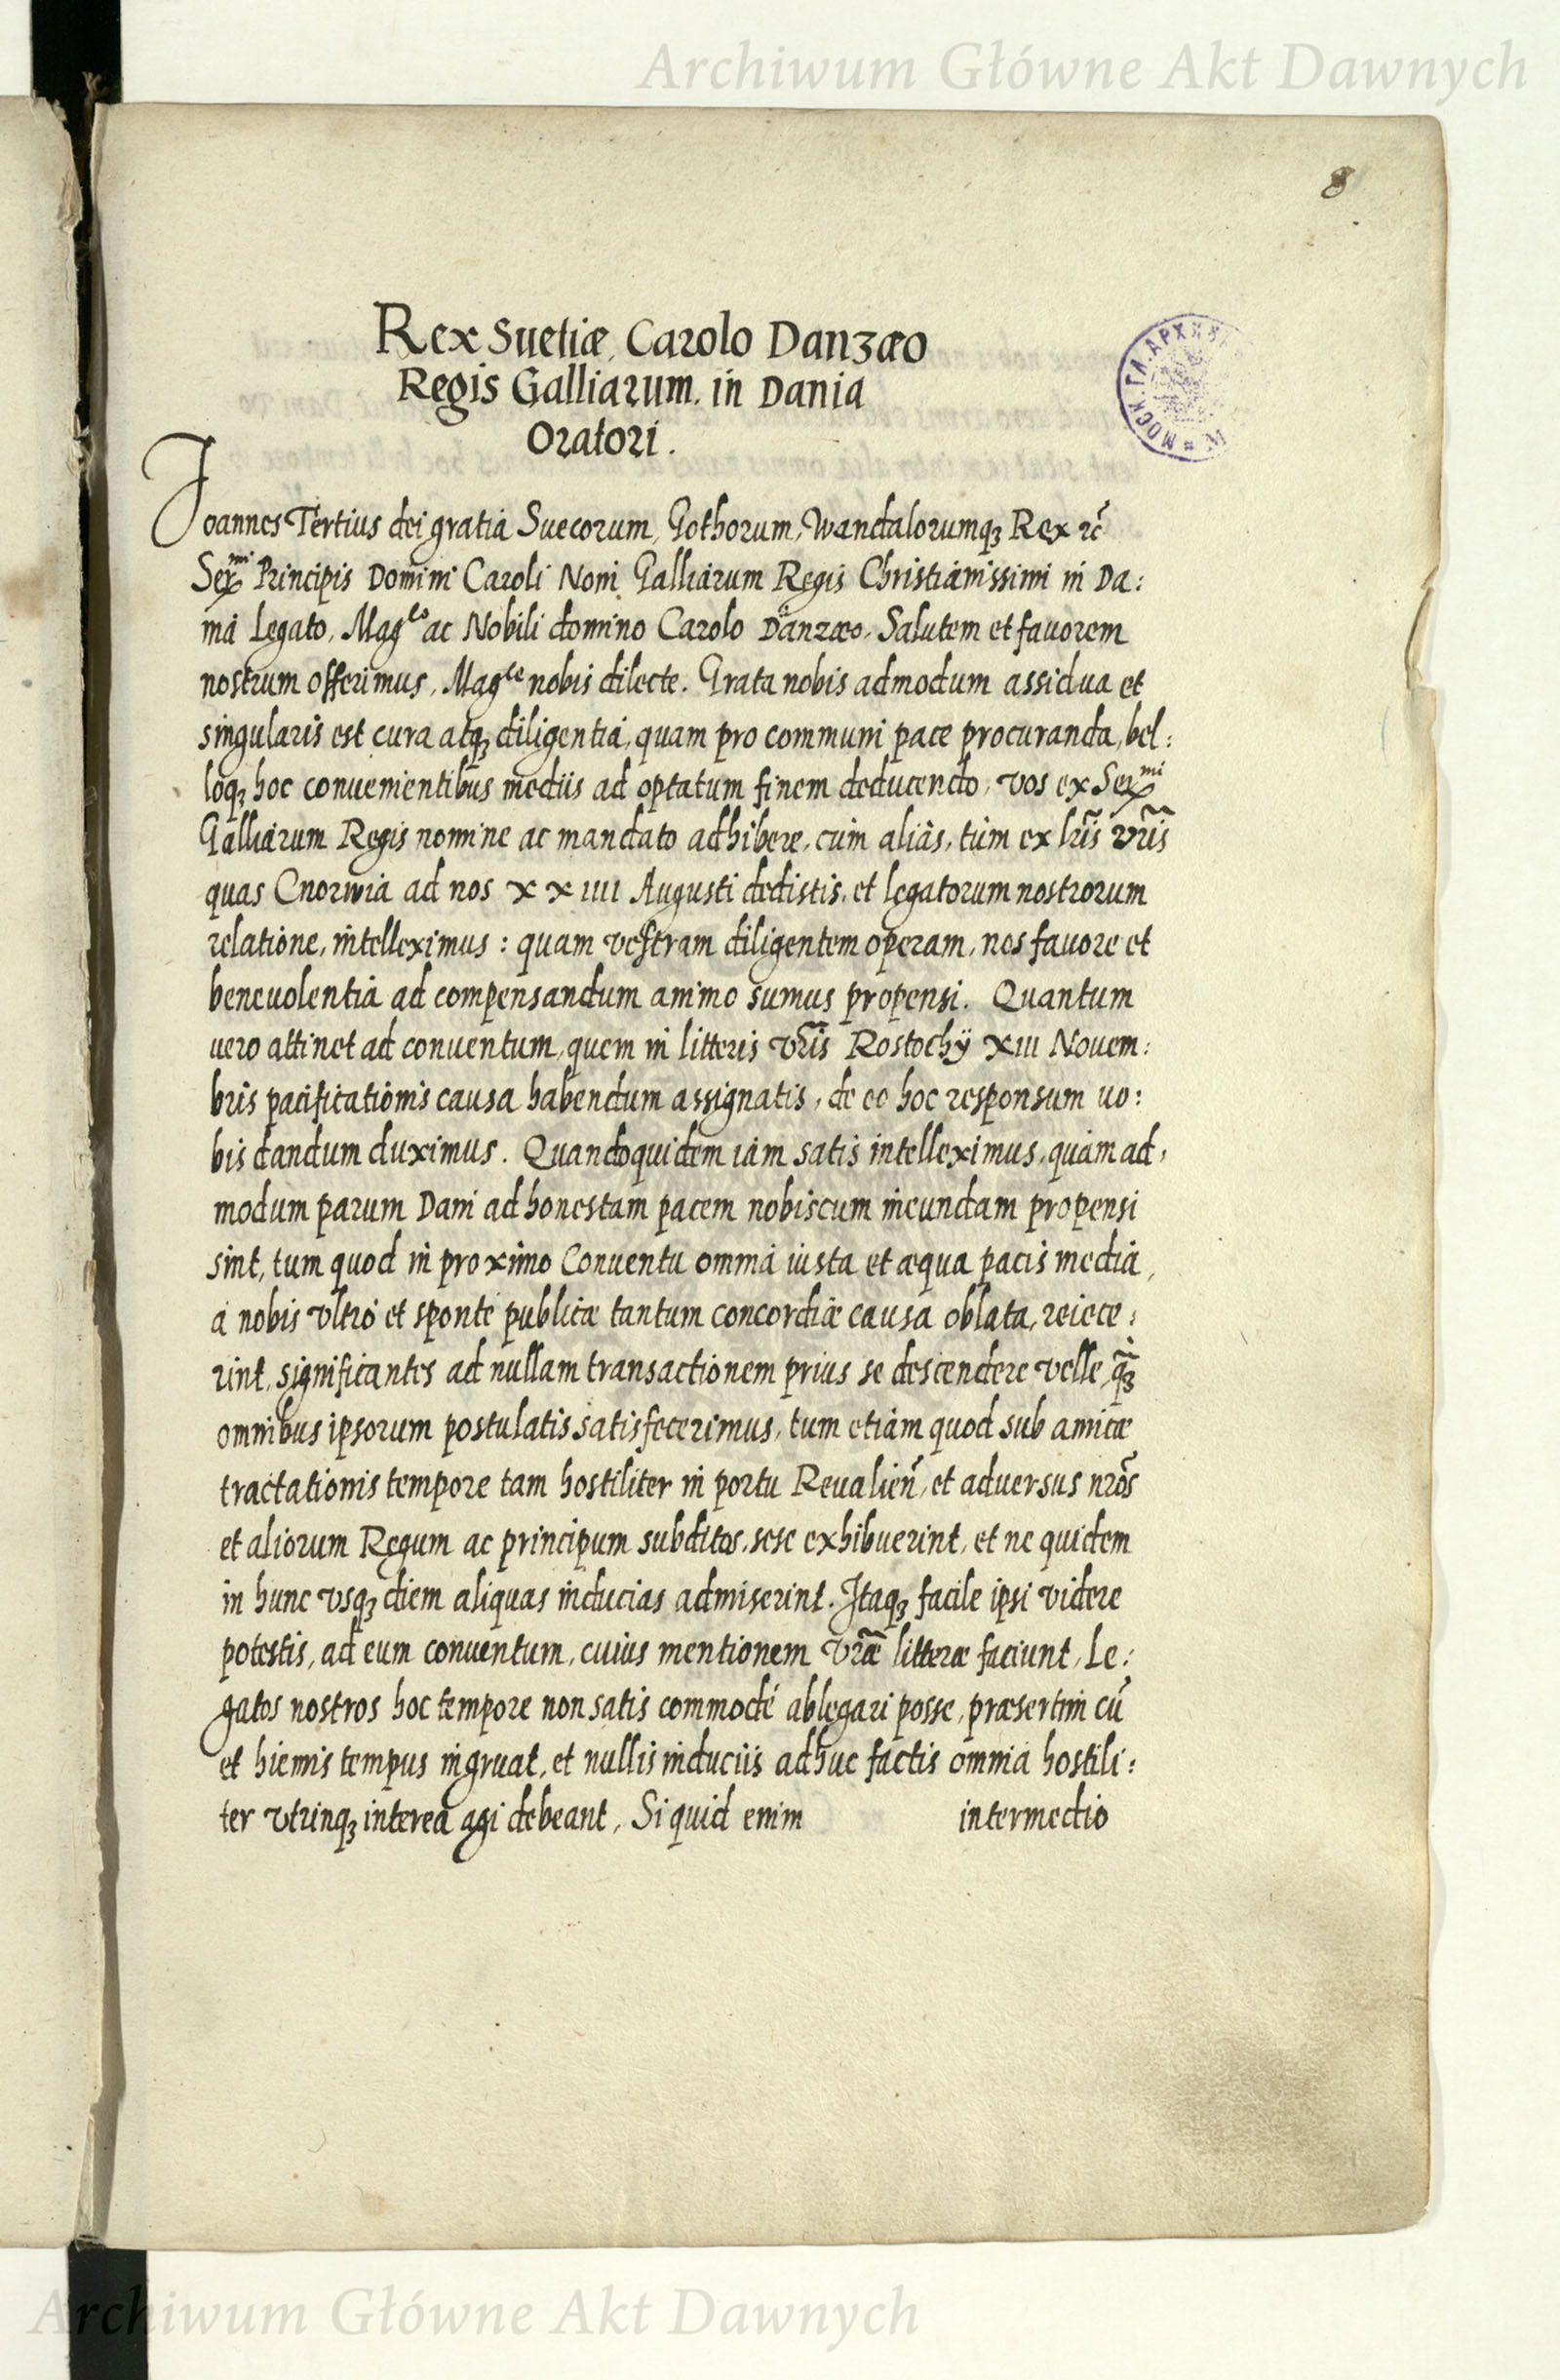 Archiwum Główne Akt Dawnych
8
Rex Suetiæ, Carolo Danzæo
Regis Galliarum, in Dania
Oratori.
МОСК. ГЛ. АРХИВ
Joannes Tertius dei gratia Suecorum, Gothorum, Wandalorumqꝫ Rex ꝛc̃
Serᵐⁱ Principis Domini Caroli Noni Galliarum Regis Christianissimi in Da:
nia Legato, Magᶜᵒ ac Nobili domino Carolo Danzæo, Salutem et fauorem
nostrum offerimus, Magᶜᵉ nobis dilecte. Grata nobis admodum assidua et
singularis est cura atqꝫ diligentia, quam pro communi pace procuranda, bel:
loqꝫ hoc conuenientibus mediis ad optatum finem deducendo, vos ex Serᵐⁱ
Galliarum Regis nomine ac mandato adhibere, cùm aliâs, tùm ex lr̃is vr̃is
quas Cnornia ad nos XXIIII Augusti dedistis, et legatorum nostrorum
relatione, intelleximus: quam vestram diligentem operam, nos fauore et
beneuolentia ad compensandum animo sumus propensi. Quantum
uero attinet ad conuentum, quem in litteris vr̃is Rostochÿ XIII Nouem:
bris pacificationis causa habendum assignatis, de eo hoc responsum uo:
bis dandum duximus. Quandoquidem iàm satis intelleximus, quàm ad:
modum parum Dani ad honestam pacem nobiscum ineundam propensi
sint, tum quod in proximo Conuentu omnia iusta et æqua pacis media,
a nobis vltrò et spontè publicæ tantum concordiæ causa oblata, reiece:
rint, significantes ad nullam transactionem prius se descendere velle, q̃ꝫ
omnibus ipsorum postulatis satisfecerimus, tum etiàm quod sub amicæ
tractationis tempore tam hostiliter in portu Reualieñ, et aduersus nr̃os
et aliorum Regum ac principum subditos, sese exhibuerint, et ne quidem
in hunc vsqꝫ diem aliquas inducias admiserint. Itaqꝫ facile ipsi videre
potestis, ad eum conuentum, cuius mentionem vr̃æ litteræ faciunt, Le:
gatos nostros hoc tempore non satis commodé ablegari posse, præsertim cũ
et hiemis tempus ingruat, et nullis induciis adhuc factis omnia hostili:
ter vtrinqꝫ interea agi debeant, Si quid enim intermedio
Archiwum Główne Akt Dawnych